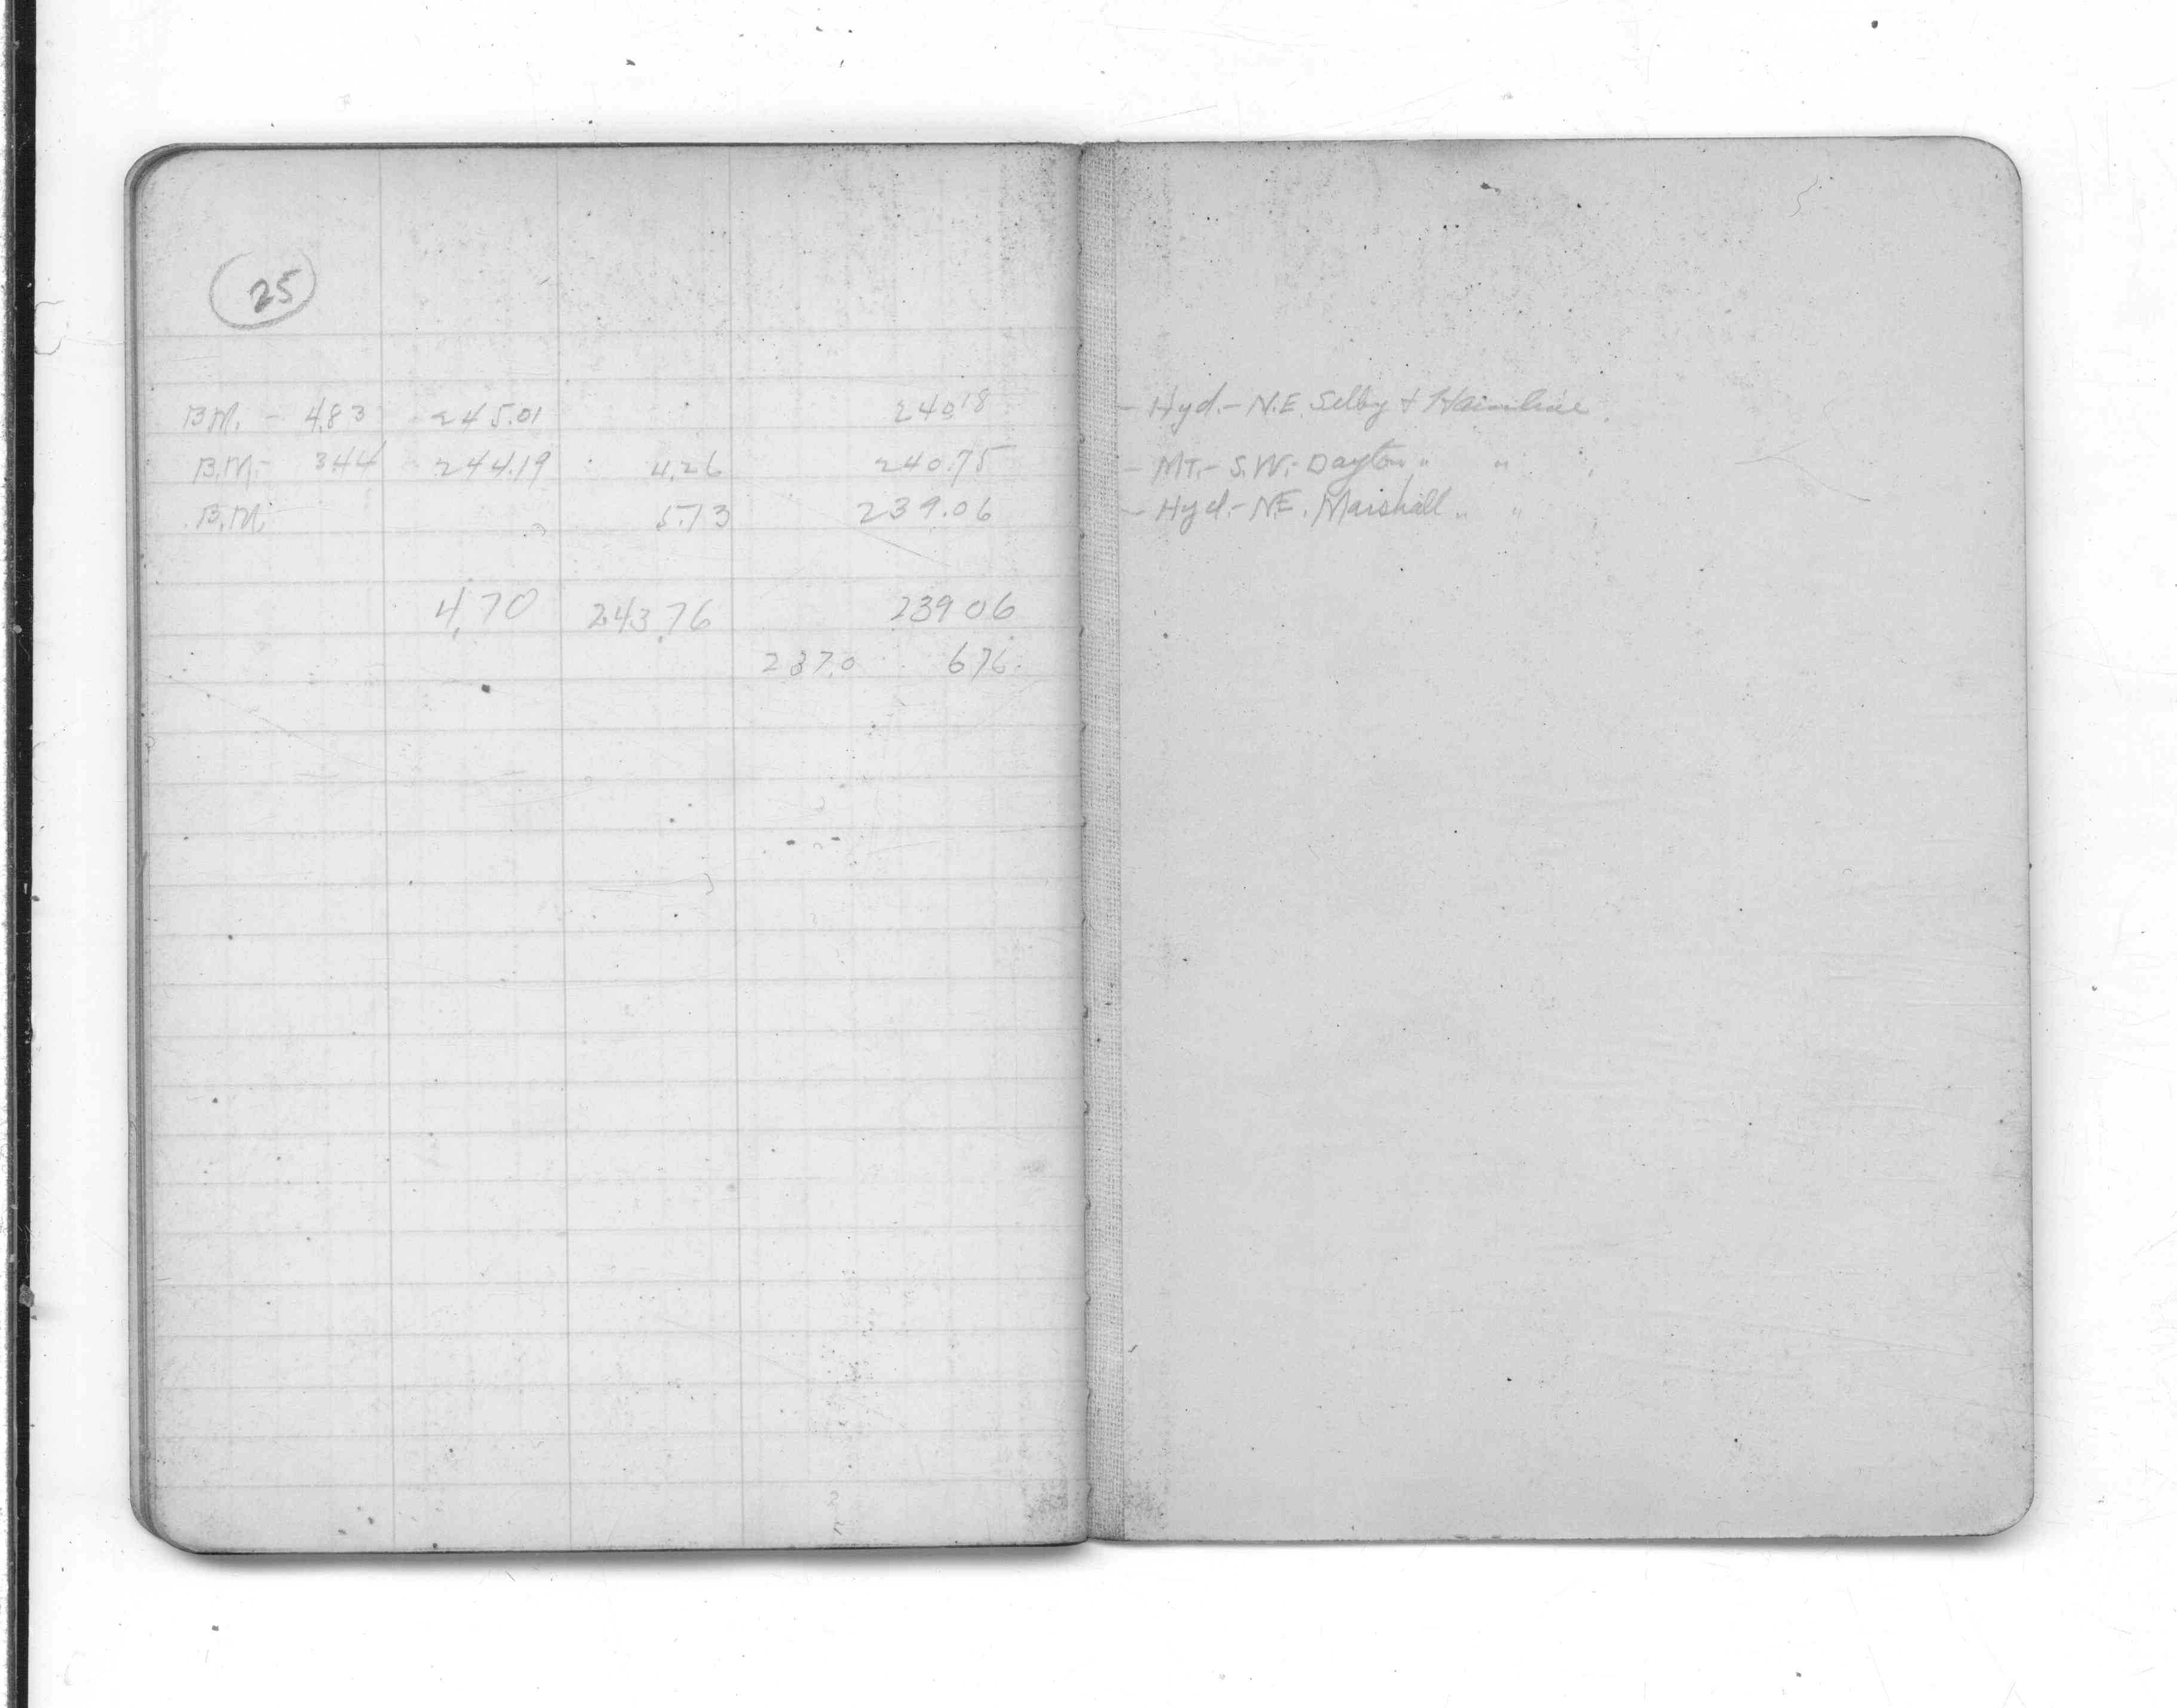 25
B.M. - 4.83 - 245.01 240.18 - Hyd. - N.E. Selby + Hamline.
B.M. - 3.44 244.19 4.26 240.75 - MT. - S.W. - Dayton " "
B.M. 5.13 239.06 - Hyd. - N.E. Marshall " "
4.70 243.76 239 06
237.0 676